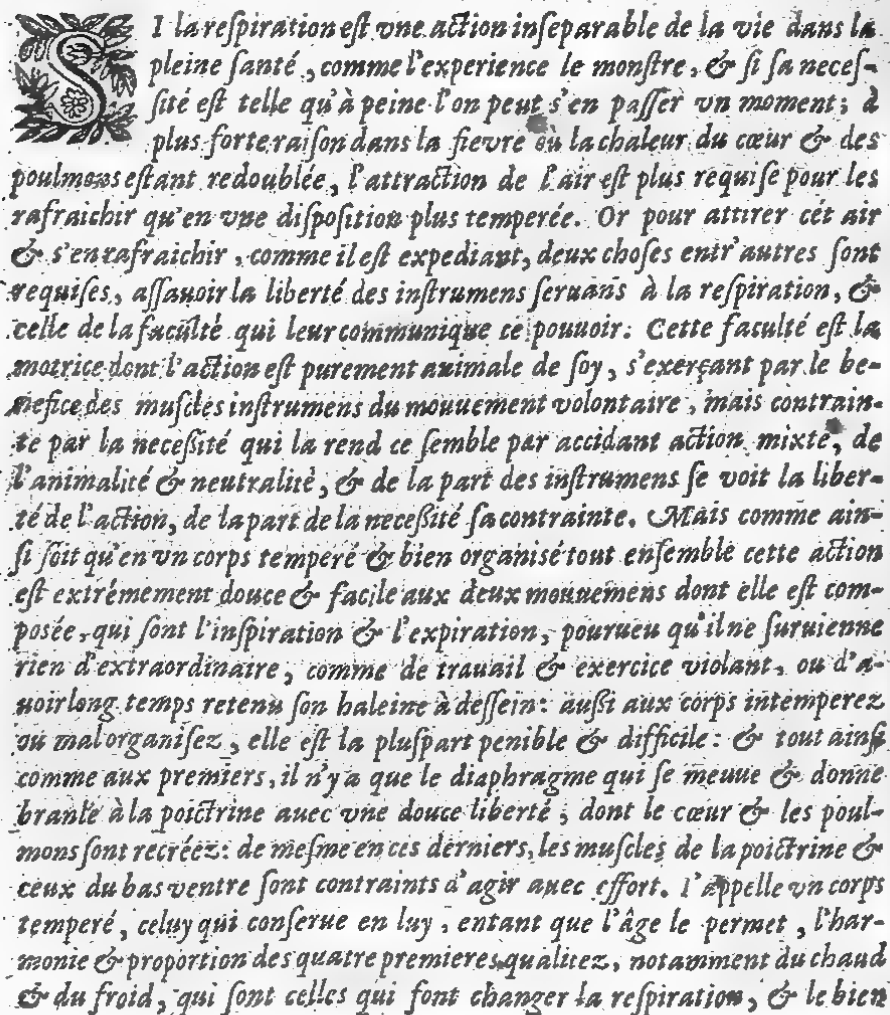 SI la reſpiration eſt vne action inſeparable de la vie dans la
pleine ſanté, comme l'experience le monſtre, & ſi ſa neceſ-
ſité eſt telle qu'à peine l'on peut s'en paſſer vn moment; à
plus forte raiſon dans la fievre où la chaleur du cœur & des
poulmons eſtant redoublée, l'attraction de l'air eſt plus requiſe pour les
rafraichir qu'en vne diſpoſition plus temperée. Or pour attirer cét air
& s'en rafraichir, comme il eſt expediant, deux choſes entr'autres ſont
requiſes, aſſauoir la liberté des inſtrumens ſeruans à la reſpiration, &
celle de la faculté qui leur communique ce pouuoir: Cette faculté eſt la
motrice dont l'action eſt purement animale de ſoy, s'exerçant par le be-
nefice des muſcles inſtrumens du mouuement volontaire, mais contrain-
te par la neceſſité qui la rend ce ſemble par accidant action mixte, de
l'animalité & neutralité, & de la part des inſtrumens ſe voit la liber-
té de l'action, de la part de la neceſſité ſa contrainte. Mais comme ain-
ſi ſoit qu'en vn corps temperé & bien organisé tout enſemble cette action
eſt extrémement douce & facile aux deux mouuemens dont elle eſt com-
posée, qui ſont l'inſpiration & l'expiration, pourueu qu'il ne ſuruienne
rien d'extraordinaire, comme de trauail & exercice violant, ou d'a-
uoir long temps retenu ſon haleine à deſſein: auſſi aux corps intemperez
ou mal organiſez, elle eſt la pluſpart penible & difficile: & tout ainſi
comme aux premiers, il n'y a que le diaphragme qui ſe meuue & donne
branle à la poictrine auec vne douce liberté, dont le cœur & les poul-
mons ſont recréez: de meſme en ces derniers, les muſcles de la poictrine &
ceux du bas ventre ſont contraints d'agir auec effort. I'appelle vn corps
temperé, celuy qui conſerue en luy, entant que l'âge le permet, l'har-
monie & proportion des quatre premieres qualitez, notamment du chaud
& du froid, qui ſont celles qui font changer la reſpiration, & le bien